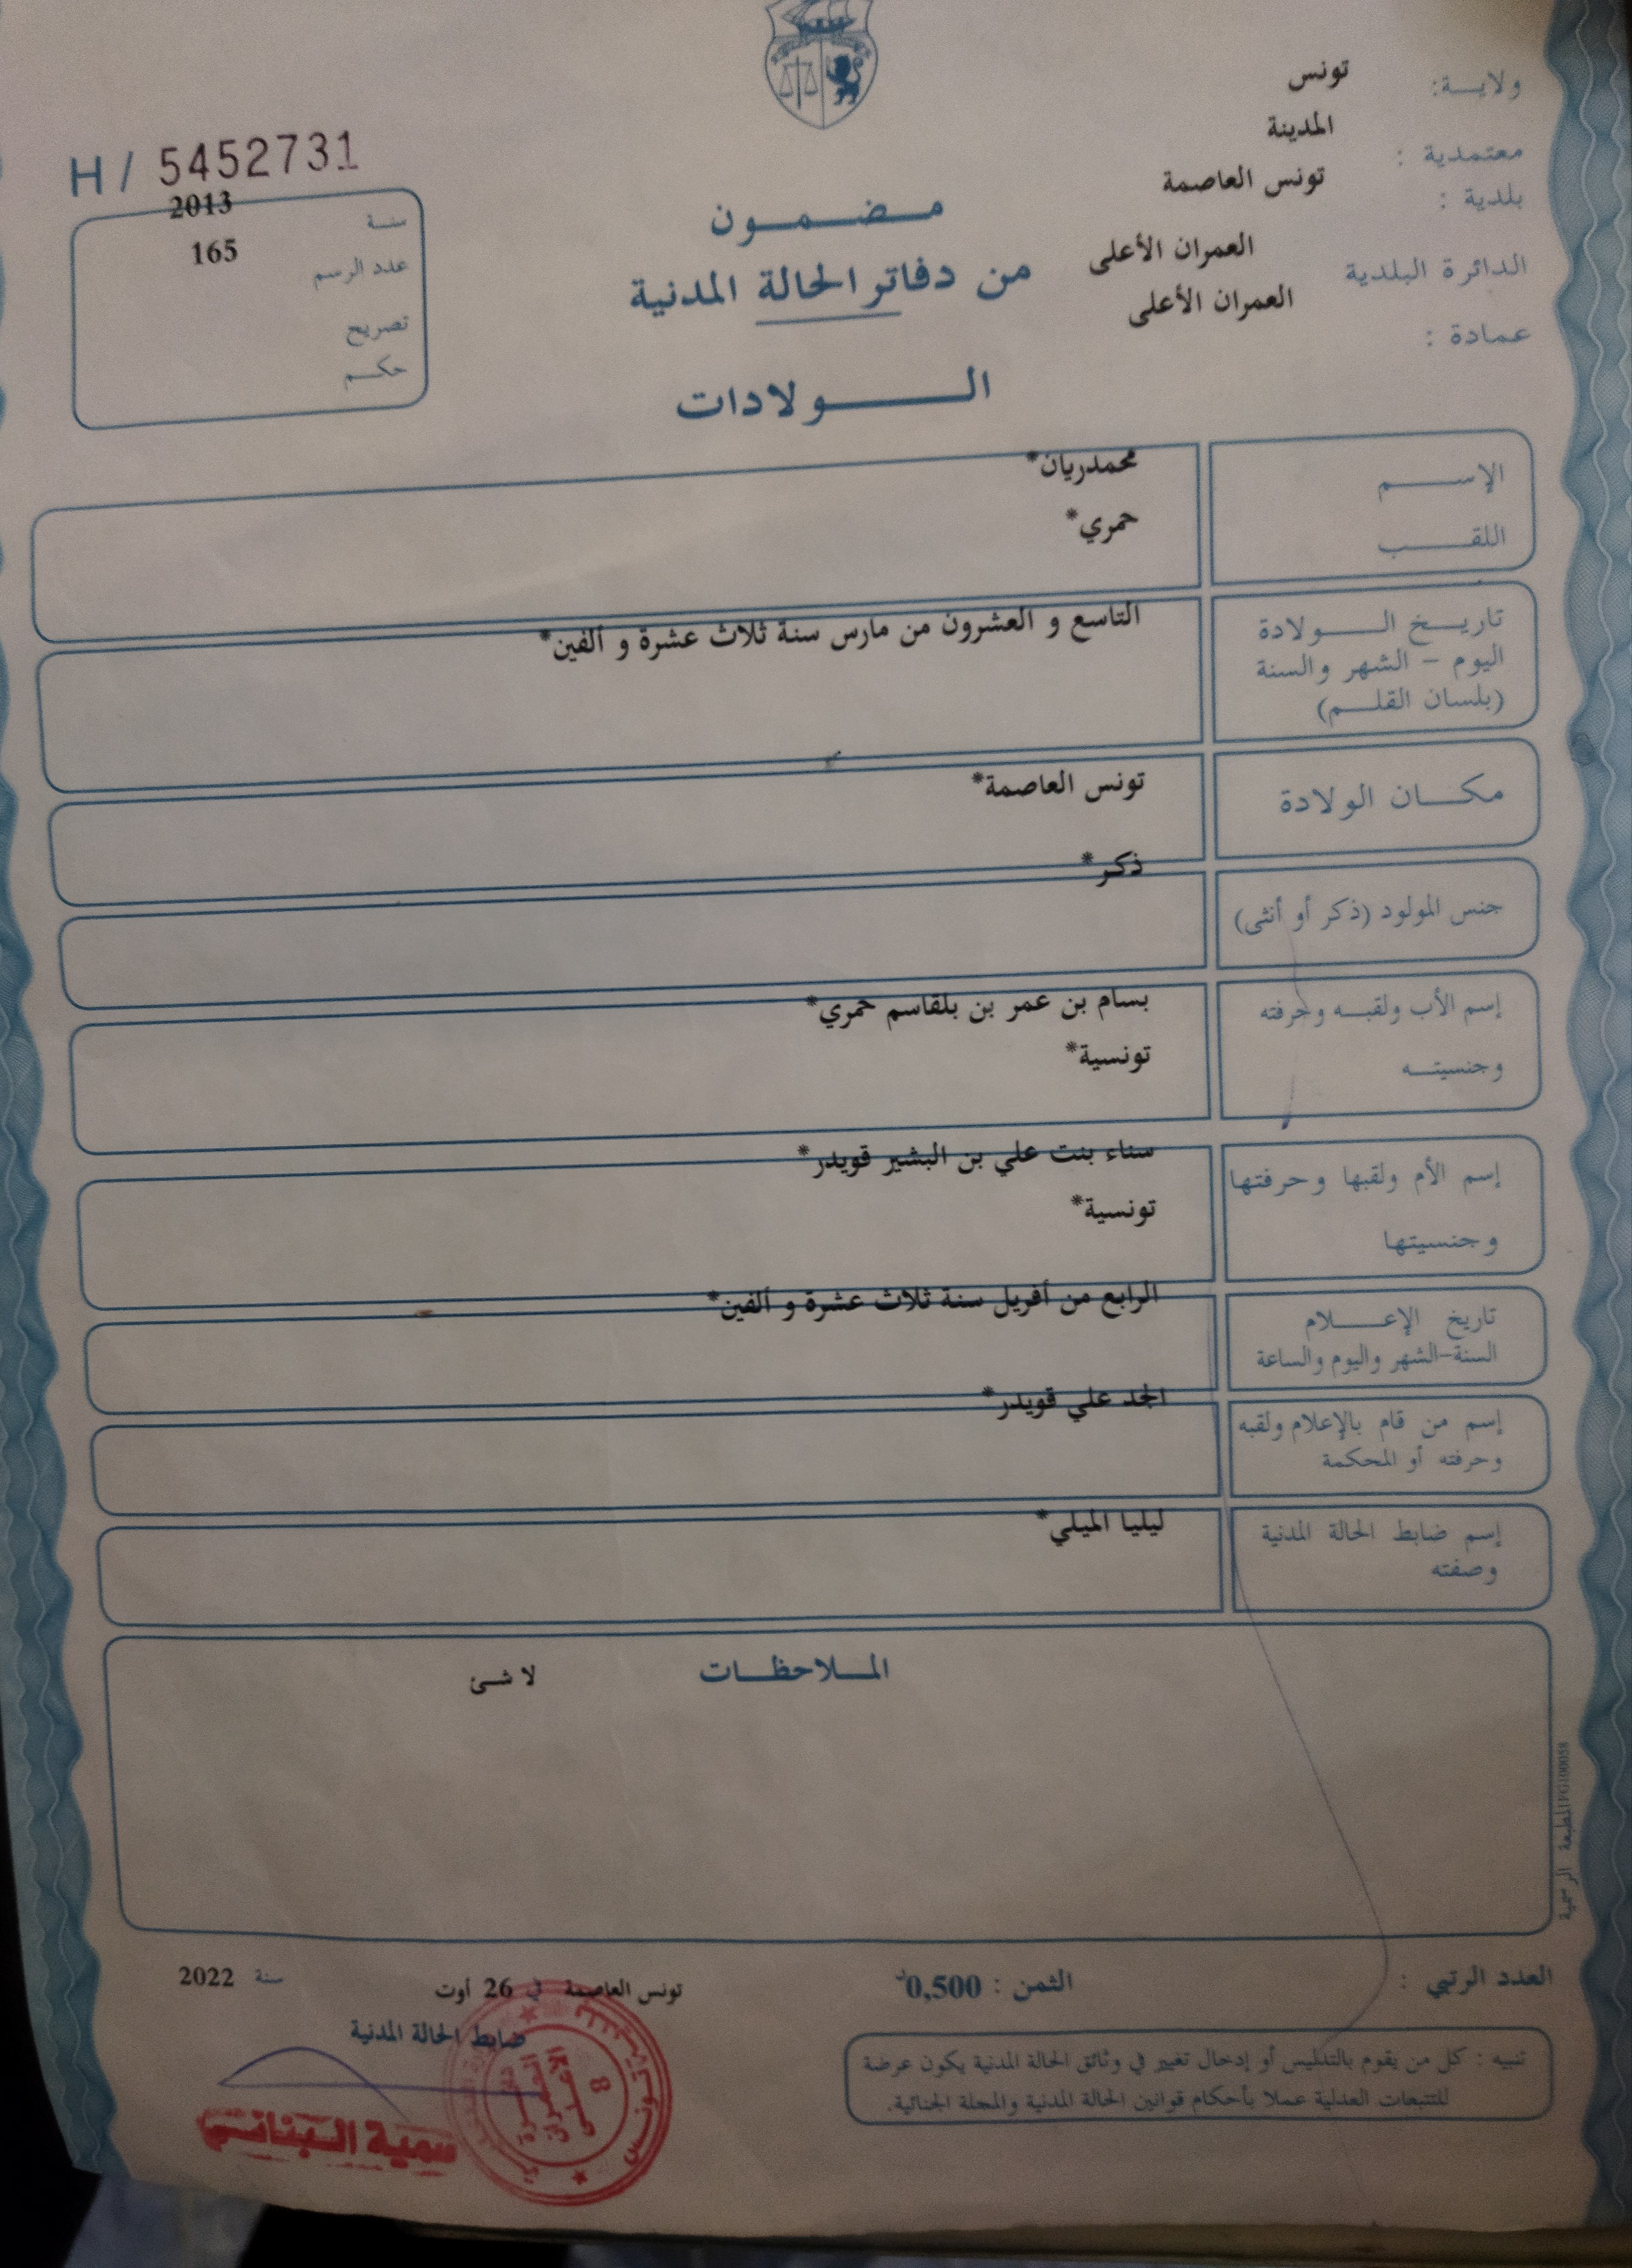 ولايـــة: تونس
معتمدية : المدينة
بلدية : تونس العاصمة
الدائرة البلدية العمران الأعلى
عمادة : العمران الأعلى
H / 5452731
سنـة 2013
عدد الرسم 165
تصريح
حكـــم
مـــضـــمـــون
من دفاتر الحالة المدنية
الـــــــولادات
الإســـــم محمدريان*
اللقـــــب حمري*
تاريـــخ الـــــولادة التاسع و العشرون من مارس سنة ثلاث عشرة و ألفين*
اليوم - الشهر والسنة
(بلسان القلـــم)
مكـــان الولادة تونس العاصمة*
جنس المولود (ذكر أو أنثى) ذكر*
إسم الأب ولقبـــه وحرفته بسام بن عمر بن بلقاسم حمري*
وجنسيتـــه تونسية*
إسم الأم ولقبها وحرفتها سناء بنت علي بن البشير قويدر*
وجنسيتها تونسية*
تاريخ الإعـــــلام الرابع من أفريل سنة ثلاث عشرة و ألفين*
السنة-الشهر واليوم والساعة
إسم من قام بالإعلام ولقبه الجد علي قويدر*
وحرفته أو المحكمة
إسم ضابط الحالة المدنية ليليا الميلي*
وصفته
المـــلاحظـــات لا شئ
العدد الرتبي :
الثمن : 0,500د
تونس العاصمة في 26 أوت سنة 2022
ضابط الحالة المدنية
سمية البناني
8
تنبيه : كل من يقوم بالتدليس أو إدخال تغيير في وثائق الحالة المدنية يكون عرضة
للتتبعات العدلية عملا بأحكام قوانين الحالة المدنية والمجلة الجنائية.